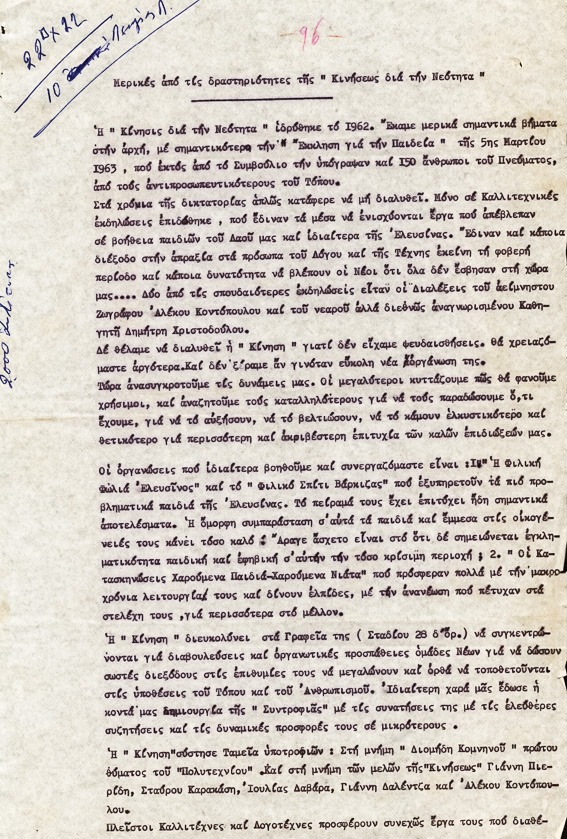 22 Δ Χ 22
10
96
Μερικές ἀπό τίς δραστηριότητες τῆς " Κινήσεως διά τήν Νεότητα "
Ἡ " Κίνησις διά τήν Νεότητα " ἱδρύθηκε τό 1962. Ἔκαμε μερικά σημαντικά βήματα
στήν ἀρχή, μέ σημαντικώτερο τήν " Ἔκκληση γιά τήν Παιδεία " τῆς 5ης Μαρτίου
1963 , πού ἐκτός ἀπό τό Συμβούλιο τήν ὑπόγραψαν καί 150 ἄνθρωποι τοῦ Πνεύματος,
ἀπό τούς ἀντιπροσωπευτικώτερους τοῦ Τόπου.
Στά χρόνια τῆς δικτατορίας ἁπλῶς κατάφερε νά μή διαλυθεῖ. Μόνο σέ Καλλιτεχνικές
ἐκδηλώσεις ἐπιδόθηκε , πού ἔδιναν τά μέσα νά ἐνισχύονται ἔργα πού ἀπέβλεπαν
σέ βοήθεια παιδιῶν τοῦ Λαοῦ μας καί ἰδιαίτερα τῆς Ἐλευσίνας. Ἔδιναν καί κάποια
διέξοδο στήν ἀπραξία στά πρόσωπα τοῦ Λόγου καί τῆς Τέχνης ἐκείνη τή φοβερή
περίοδο καί κάποια δυνατότητα νά βλέπουν οἱ Νέοι ὅτι ὅλα δέν ἔσβησαν στή χώρα
μας.... Δύο ἀπό τίς σπουδαιότερες ἐκδηλώσεις εἶταν οἱ Διαλέξεις τοῦ ἀείμνηστου
Ζωγράφου Ἀλέκου Κοντόπουλου καί τοῦ νεαροῦ ἀλλά διεθνῶς ἀναγνωρισμένου Καθη-
γητῆ Δημήτρη Χριστοδούλου.
Δέ θέλαμε νά διαλυθεῖ ἡ " Κίνηση " γιατί δέν εἴχαμε ψευδαισθήσεις. Θά χρειαζό-
μαστε ἀργότερα.Καί δέν ξέραμε ἄν γινόταν εὔκολη νέα ὀργάνωση της.
Τώρα ἀνασυγκροτοῦμε τίς δυνάμεις μας. Οἱ μεγαλύτεροι κυττάζουμε πῶς θά φανοῦμε
χρήσιμοι, καί ἀναζητοῦμε τούς καταλληλότερους γιά νά τούς παραδώσουμε ὅ,τι
ἔχουμε, γιά νά τό αὐξήσουν, νά τό βελτιώσουν, νά τό κάμουν ἑλκυστικότερο καί
θετικότερο γιά περισσότερη καί ἀκριβέστερη ἐπιτυχία τῶν καλῶν ἐπιδιώξεών μας.
Οἱ ὀργανώσεις πού ἰδιαίτερα βοηθοῦμε καί συνεργαζόμαστε εἶναι :1." Ἡ Φιλική
Φωλιά Ἐλευσῖνος" καί τό " Φιλικό Σπίτι Βάρκιζας" πού ἐξυπηρετοῦν τά πιό προ-
βληματικά παιδιά τῆς Ἐλευσίνας. Τό πείραμά τους ἔχει ἐπιτύχει ἤδη σημαντικά
ἀποτελέσματα. Ἡ ὄμορφη συμπαράσταση σ'αὐτά τά παιδιά καί ἔμμεσα στίς οἰκογέ-
νειές τους κάνει τόσο καλό : Ἄραγε ἄσχετο εἶναι στό ὅτι δέ σημειώνεται ἐγκλη-
ματικότητα παιδική καί ἐφηβική σ'αὐτήν τήν τόσο κρίσιμη περιοχή ; 2. " Οἱ Κα-
τασκηνώσεις Χαρούμενα Παιδιά-Χαρούμενα Νιάτα" πού πρόσφεραν πολλά μέ τήν μακρο-
χρόνια λειτουργία τους καί δίνουν ἐλπίδες, μέ τήν ἀνανέωση πού πέτυχαν στά
στελέχη τους ,γιά περισσότερα στό μέλλον.
Ἡ " Κίνηση " διευκολύνει στά Γραφεῖα της ( Σταδίου 28 δ'ὄρ.) νά συγκεντρώ-
νονται γιά διαβουλεύσεις καί ὀργανωτικές προσπάθειες ὁμάδες Νέων γιά νά δώσουν
σωστές διεξόδους στίς ἐπιθυμίες τους νά μεγαλώνουν καί ὀρθά νά τοποθετοῦνται
στίς ὑποθέσεις τοῦ Τόπου καί τοῦ Ἀνθρωπισμοῦ. Ἰδιαίτερη χαρά μᾶς ἔδωσε ἡ
κοντά μας δημιουργία τῆς " Συντροφιᾶς" μέ τίς συναντήσεις της μέ τίς ἐλεύθερες
συζητήσεις καί τίς δυναμικές προσφορές τους σέ μικρότερους .
Ἡ " Κίνηση"σύστησε Ταμεῖα ὑποτροφιῶν : Στή μνήμη " Διομήδη Κομνηνοῦ " πρώτου
θύματος τοῦ "Πολυτεχνίου" .Καί στή μνήμη τῶν μελῶν τῆς"Κινήσεως" Γιάννη Πιε-
ρίδη, Σταύρου Καρακάση, Ἰουλίας Δαβάρα, Γιάννη Δαλέντζα καί Ἀλέκου Κοντόπου-
λου.
Πλεῖστοι Καλλιτέχνες καί Λογοτέχνες προσφέρουν συνεχῶς ἔργα τους πού διαθέ-